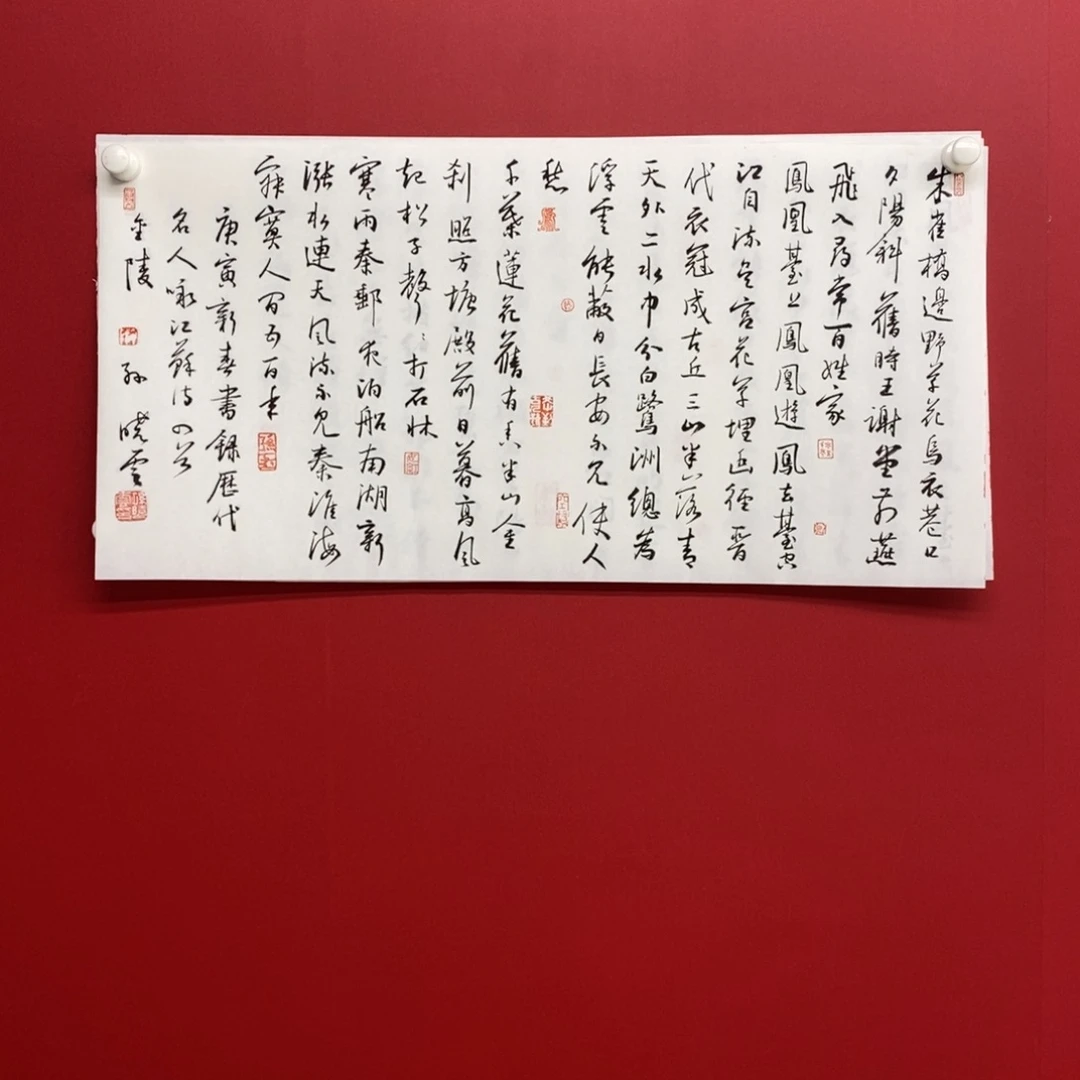 朱雀橋邊野草花烏衣巷口
夕陽斜舊時王謝堂前燕
飛入尋常百姓家
鳳凰臺上鳳凰遊鳳去臺空
江自流吳宮花草埋幽徑晉
代衣冠成古丘三山半落青
天外二水中分白鷺洲總為
浮雲能蔽日長安不見使人
愁
千葉蓮花舊有香半山金
刹照方塘殿前日暮高風
起松子聲聲打石牀
寒雨秦郵夜泊船南湖新
漲水連天風流不見秦淮海
寂寞人間五百年
庚寅新春書錄歷代
名人詠江蘇詩四首
金陵 孫曉雲